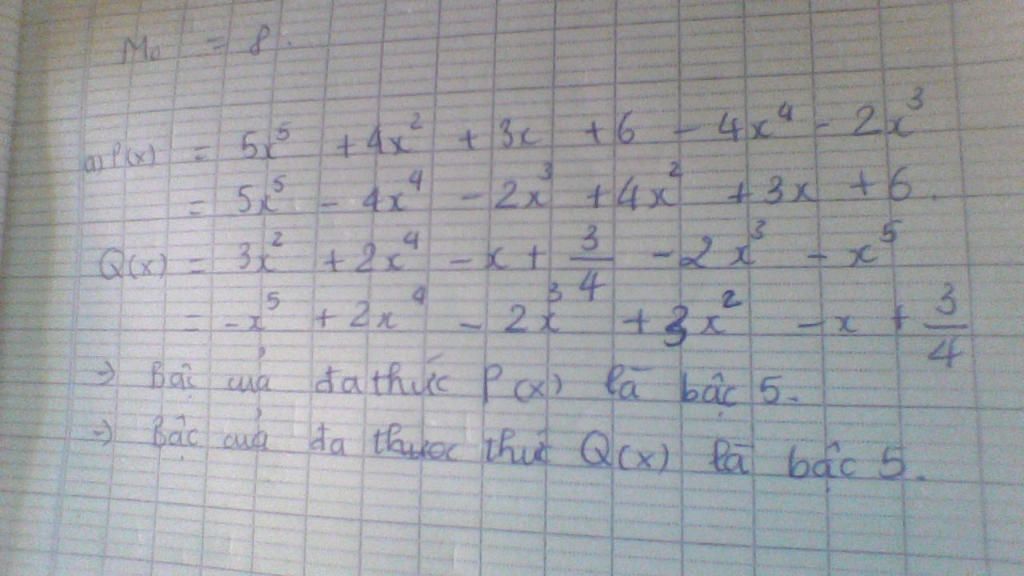 M₀ = 8.
a) P(x) = 5x⁵ + 4x² + 3x + 6 - 4x⁴ - 2x³
= 5x⁵ - 4x⁴ - 2x³ + 4x² + 3x + 6.
Q(x) = 3x² + 2x⁴ - x + 3/4 - 2x³ - x⁵
= -x⁵ + 2x⁴ - 2x³ + 3x² - x + 3/4
=> Bậc của đa thức P(x) là bậc 5.
=> Bậc của đa thức Q(x) là bậc 5.